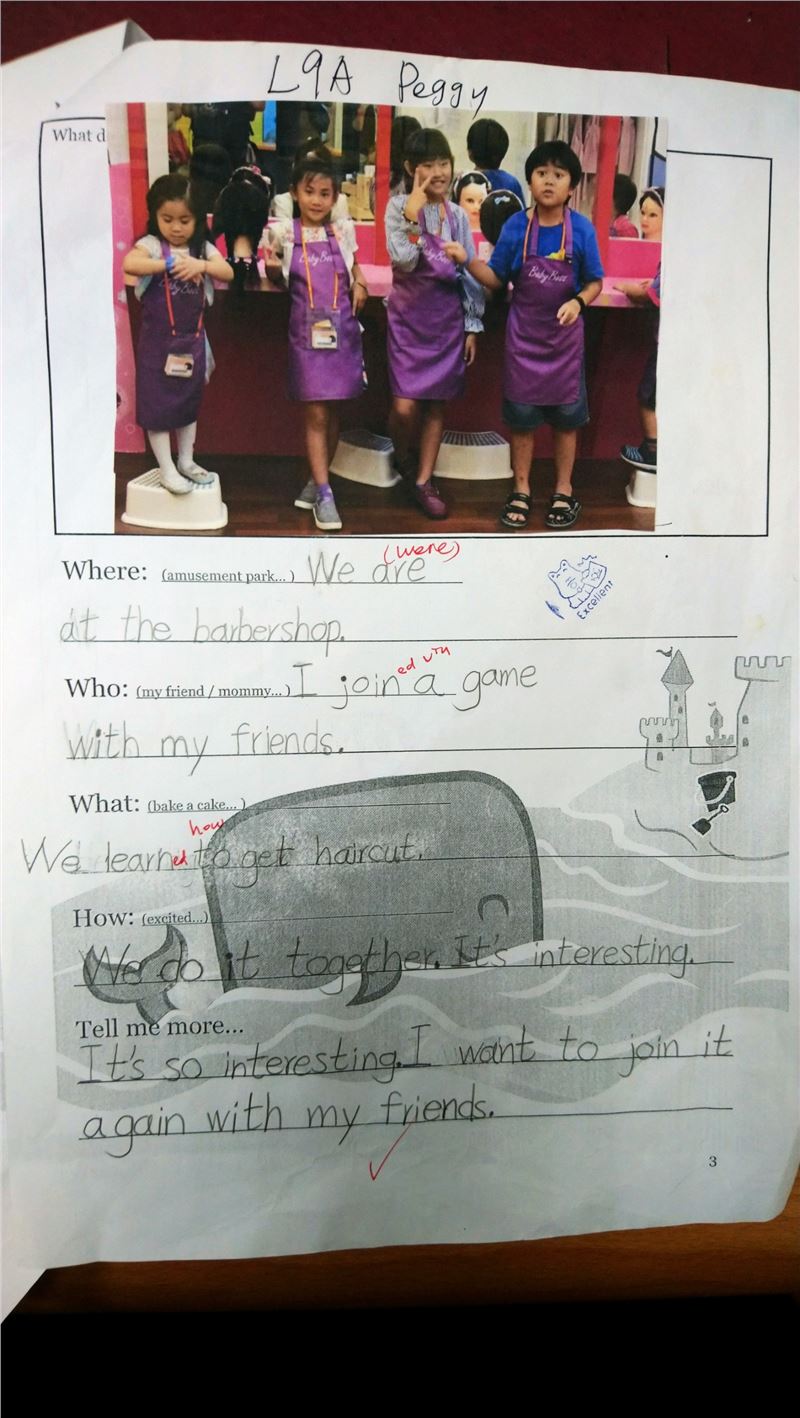 L9A Peggy
What d
Baby Boss
Baby Boss
Baby Boss
(were)
Where: (amusement park... ) We are
at the barbershop.
Excellent
ed
Who: (my friend / mommy... ) I join a game
with my friends.
What: (bake a cake... )
how
We learn ed to get haircut.
How: (excited...)
We do it together. It's interesting.
Tell me more...
It's so interesting. I want to join it
again with my friends.
3